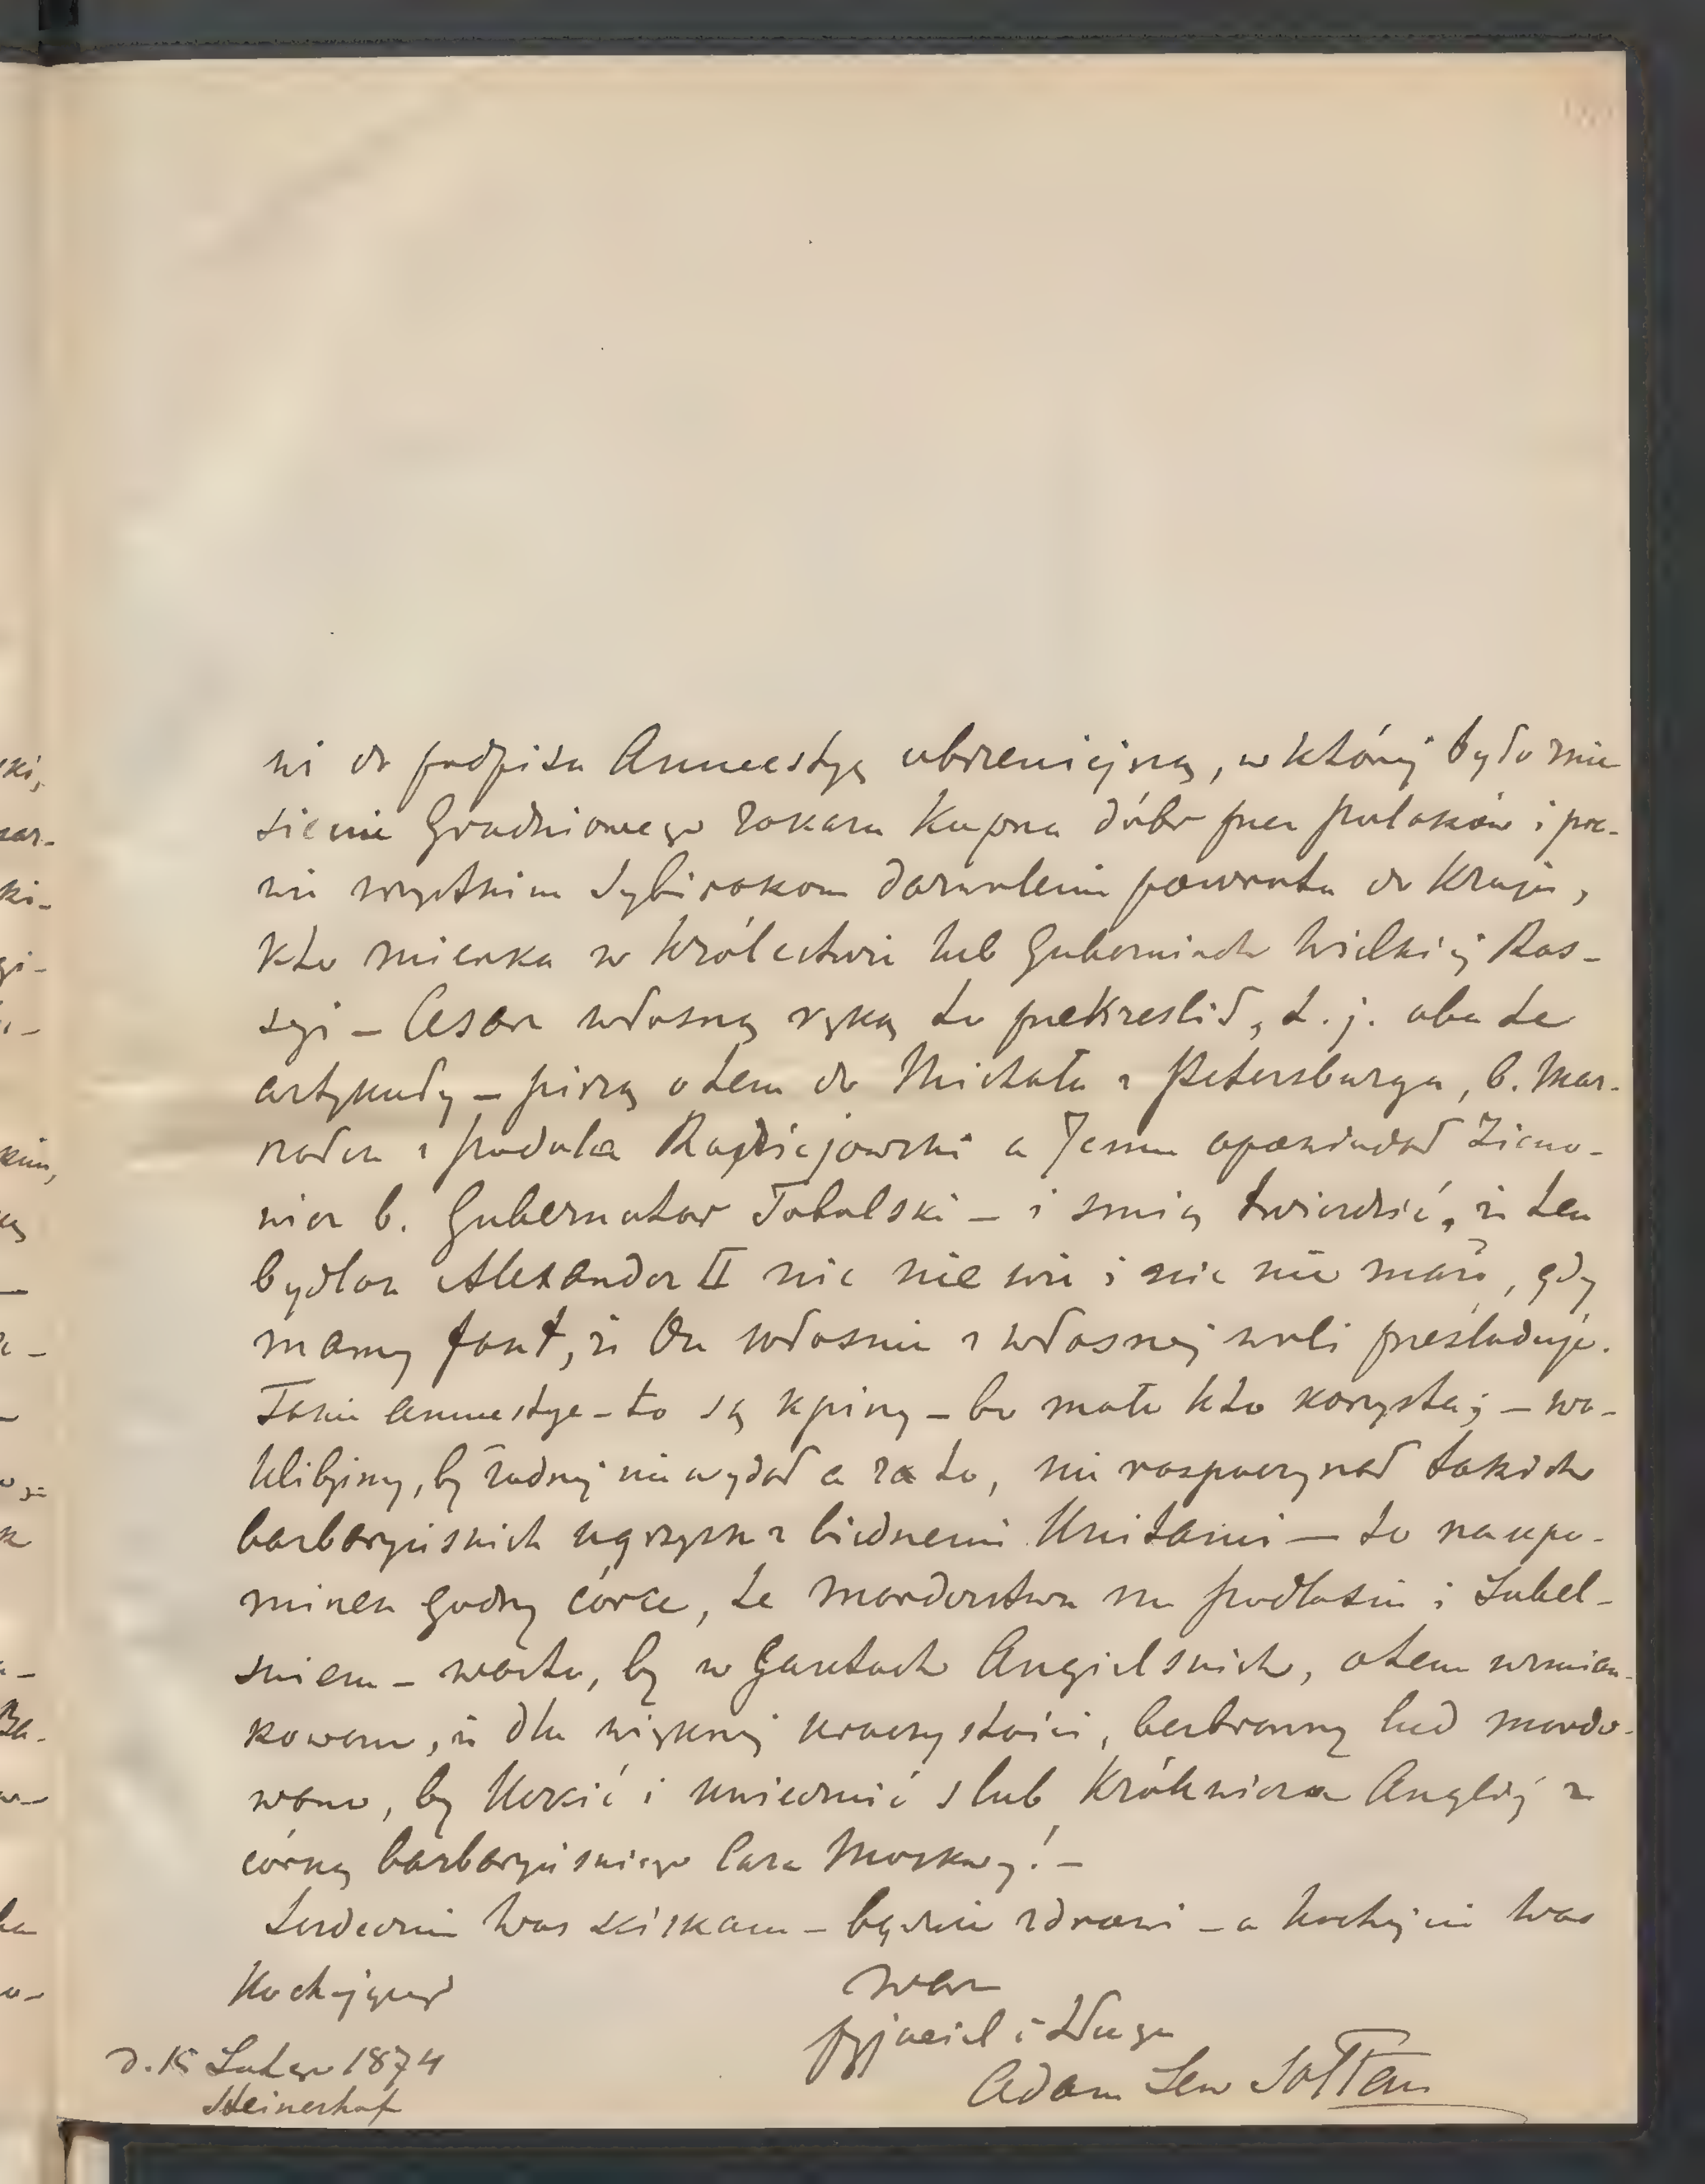 ni do podpisu Amnestyę obszerniejszą, w której było znie
sienie Grudniowego zakazu kupna dóbr przez polaków i pra-
wie wszystkim Sybirakom dozwolenie powrotu do Kraju,
kto mieszka w Królestwie lub Guberniach Wielkiej Ros-
syi – Cesarz własną ręką to przekreślił, t. j. oba te
artykuły – piszą o tem do Michała z Petersburga, b. Mar-
szałek z podola a Jemu opowiadał
b. Gubernator Tobolski – i śmią twierdzić, iż ten
bydlak Alexander II nic nie wie i nic nie może, gdy
mamy fakt, iż On właśnie z własnej woli prześladuje.
Takie amnestye – to są kpiny – bo mało kto korzysta j – wo-
lelibyśmy, by żadnej nie wydał a za to, nie rozpoczynał takich
barbarzyńskich igrzysk z biednemi Unitami – to naupo-
minek godny córce, te morderstwa na podlasiu i Lubel-
skiem – warto, by w Gazetach Angielskich, o tem wzmian-
kowano, iż dla większej uroczystości, bezbronny lud mordo-
wano, by uczcić i uwiecznić ślub Królewicza Anglij z
córką barbarzyńskiego Cara Moskwy! –
Serdecznie Was ściskam – bądźcie zdrowi – a kochajcie Was
Kochającego
Wasz
przyjaciel i Sługa
Adam Lew Sołtan
d. 15 Lutego 1874
Steinerhof